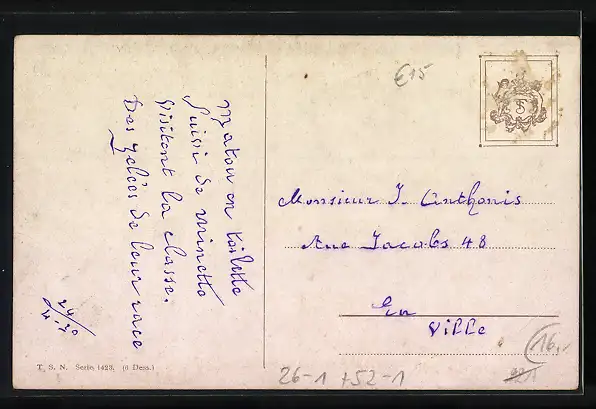 Matou en toilette
Suivi de minette
Visitent la classe.
Des zélées de leur race
24/4.20
T. S. N. Serie 1423. (6 Dess.)
€15
TS
Monsieur J. Anthonis
Rue Jacobs 48
En
Ville
16,-
26-1 +52-1